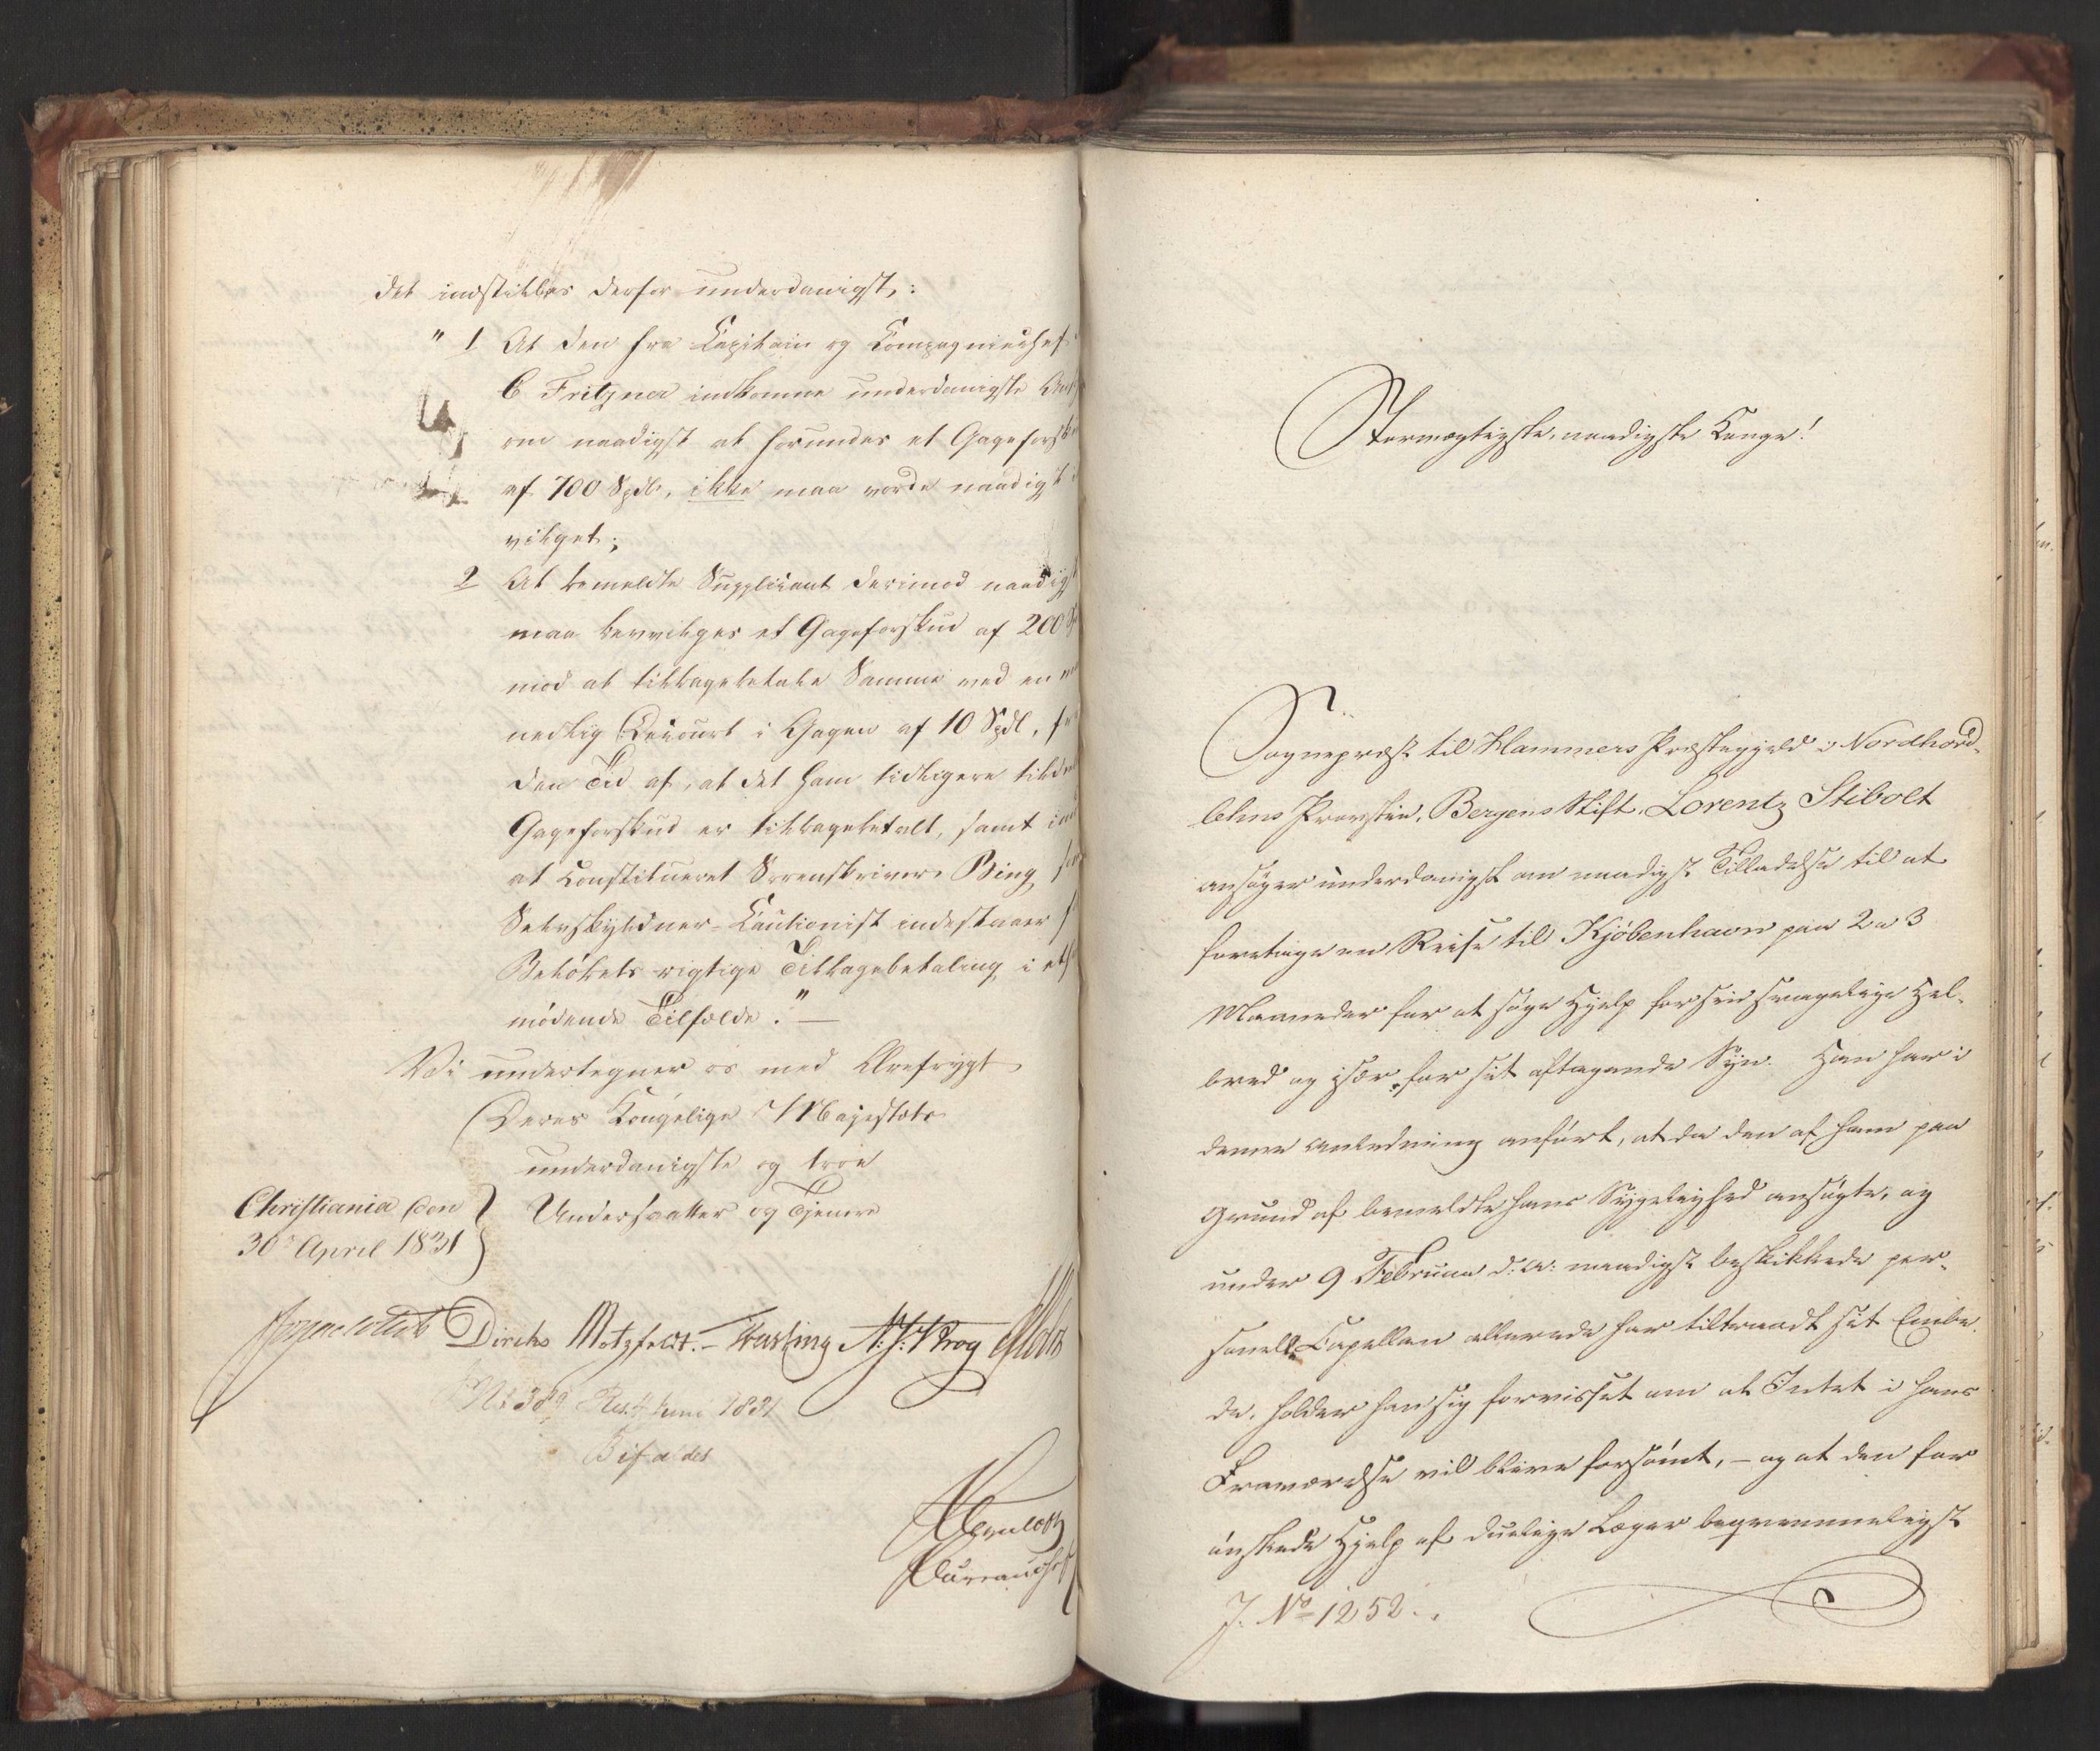 det indstilles derfor underdanigst,:
" 1 At den fra Capitain og Compagniechef
C Fritzner indkomne underdanigste Ans
om naadigst at forundes et Gageforsk
af 700 Spdlr, ikke maa vorde naadigst
vilget;
2 At bemeldte Supplicant derimod naadigst
maa bevvilges et Gageforskud af 200 Sp
mod at tilbagebetale Samme ved en maa
nedlig Decourt i Gagen af 10 Spdl, fra
den Tid af, at det ham tidligere tildel
Gageforskud er tilbagebetalt, samt imod
at constitueret Sorenskriver Bing som
Selvskyldner-Cautionist indestaaer f
Beløbets rigtige Tilbagebetaling i et
mødende Tilfælde." —
Vi undertegner os med Ærefrygt
Deres Kongelige Majestæts
underdanigste og troe
Undersaatter og Tjenere
Christiania den
30te April 1831
Diriks Motzfeldt. — Vearling N. J. Krog
No 389 Res. 4 Juni 1831
Bifaldes
Bureauchef
Stormægtigste, naadigste Konge!
Sogneprest til Hammers Præstegjeld i Nordhord-
lehns Provstie, Bergens Stift, Lorentz Stibolt
ansøger underdanigst om naadigst Tilladelse til at
foretage en Reise til Kjøbenhavn paa 2 a 3
Maaneder for at søge Hjelp for sin svagelige Hel-
bred og især for sit aftagende Syn. Han har i
denne Anledning anført, at da den af ham paa
Grund af bemeldte hans Sygelighed ansøgte, og
under 9 Februar d. A. naadigst beskikkede per-
sonelle Capellan allerede har tiltraadt sit Embe-
de, holder han sig forvisset om at Intet i hans
Fraværelse vil blive forsømt, — og at den for
ønskede Hjelp af duelige Læger beqvemmeligst
J. No 1252.